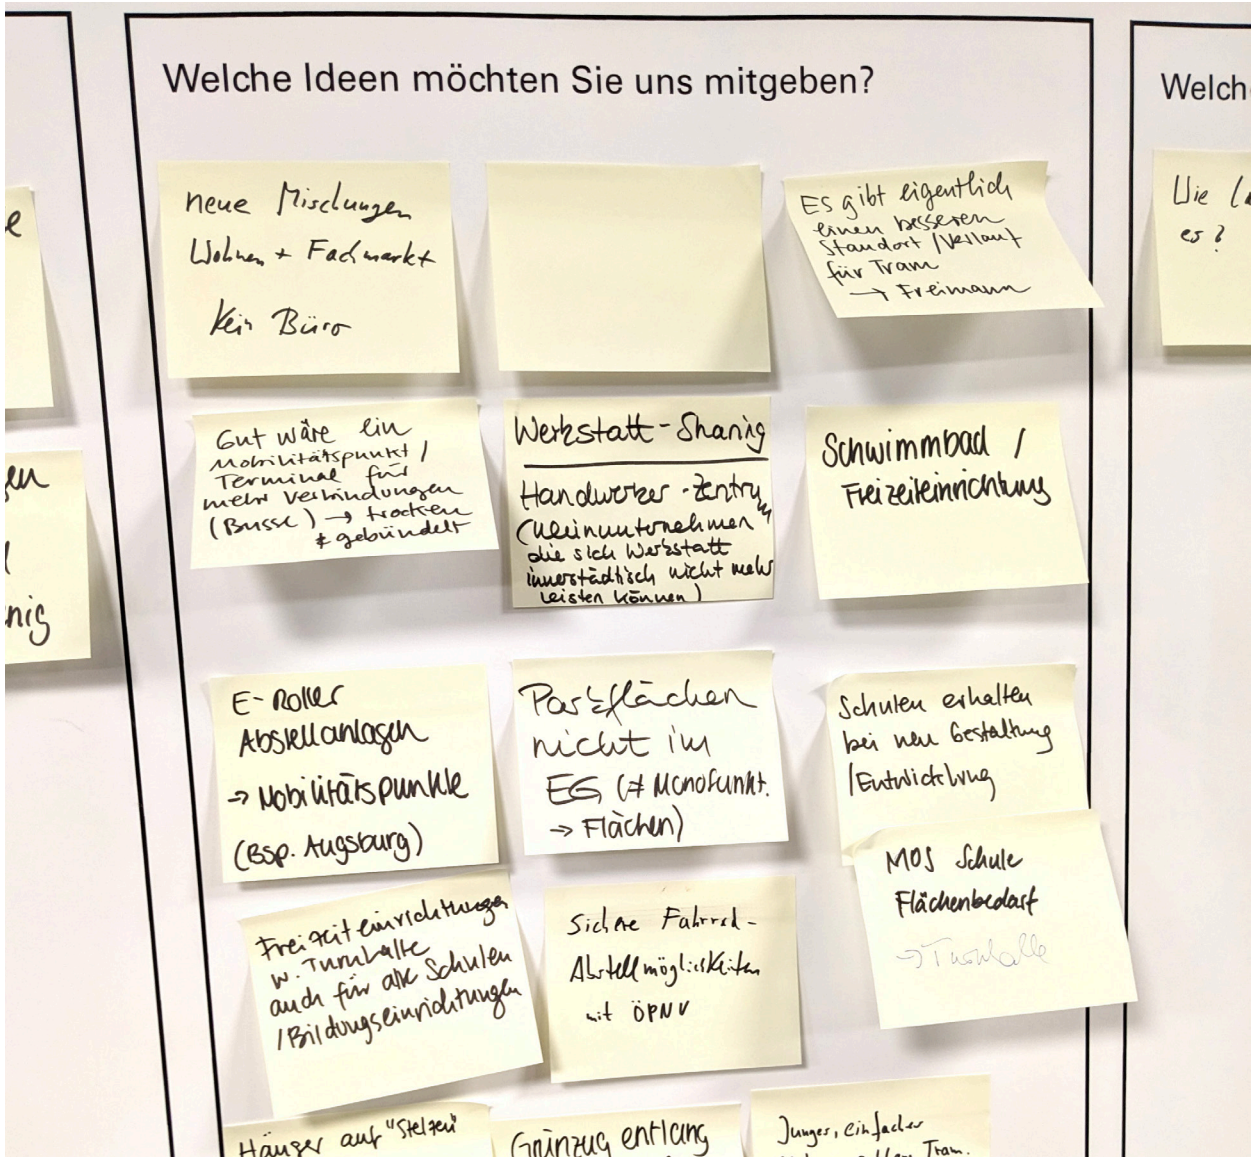 Welche Ideen möchten Sie uns mitgeben?
neue Mischungen
Wohnen + Fachmarkt
Kein Büro
Es gibt eigentlich
einen besseren
Standort / Verlauf
für Tram
→ Freimann
Gut wäre ein
Mobilitätspunkt /
Terminal für
mehr Verbindungen
(Busse) → trocken
+ gebündelt
Werkstatt-Sharing
Handwerker-Zentrum
(Kleinunternehmen
die sich Werkstatt
innerstädtisch nicht mehr
leisten können)
Schwimmbad /
Freizeiteinrichtung
E-Roller
Abstellanlagen
→ Mobilitätspunkte
(Bsp. Augsburg)
Parkflächen
nicht im
EG (≠ Monofunkt.
→ Flächen)
Schulen erhalten
bei neu Gestaltung
/Entwicklung
MOS Schule
Flächenbedarf
→ Turnhalle
Freizeiteinrichtungen
w. Turnhalle
auch für alle Schulen
/Bildungseinrichtungen
Sichere Fahrrad-
Abstellmöglichkeiten
mit ÖPNV
Häuser auf "Stelzen"
Grünzug entlang
Junges, einfaches
Tram.
Welch
Wie
es?
en
nig